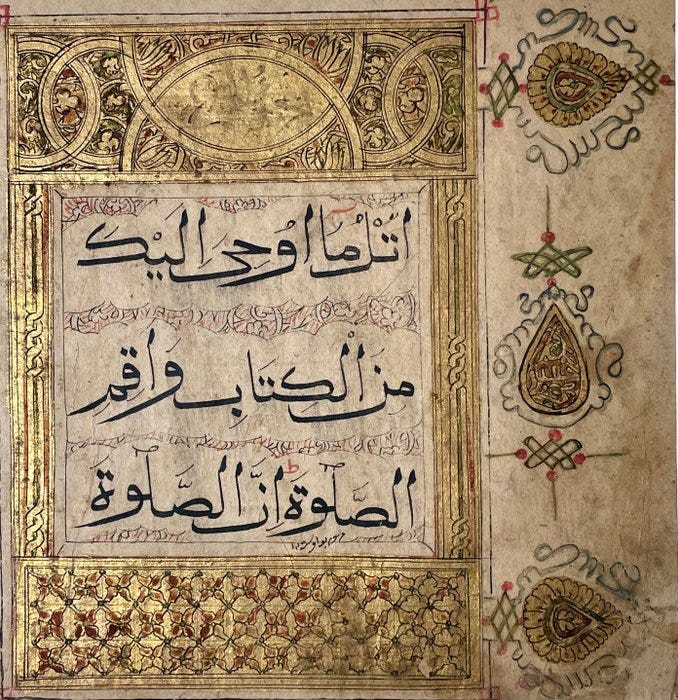 اُتْلُ مَا اُوحِیَ اِلَیْکَ
مِنَ الْکِتَابِ وَاَقِمِ
الصَّلٰوةَ ط اِنَّ الصَّلٰوةَ